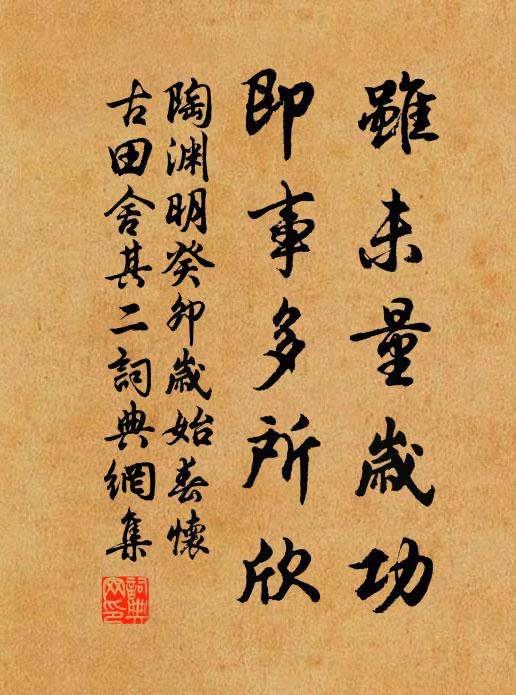 雖未量歲功
即事多所欣
陶渊明癸卯歲始春懷
古田舍其二詞典網集
詞典网印